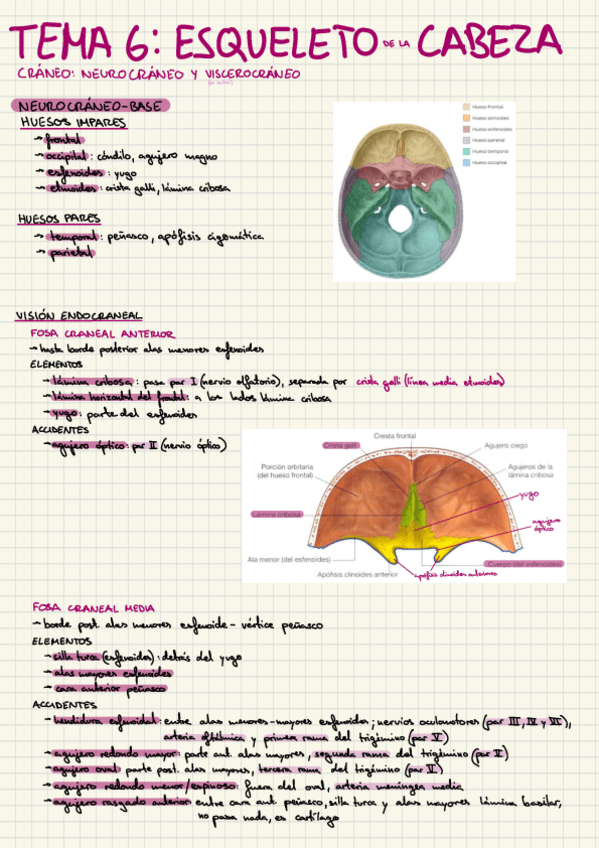 TEMA 6: ESQUELETO DE LA CABEZA
CRÁNEO: NEUROCRÁNEO Y VISCEROCRÁNEO
NEUROCRÁNEO-BASE
HUESOS IMPARES
→ frontal
→ occipital: cóndilo, agujero magno
→ esfenoides: yugo
→ etmoides: crista galli, lámina cribosa
HUESOS PARES
→ temporal: peñasco, apófisis cigomática
→ parietal
Hueso frontal
Hueso etmoides
Hueso esfenoides
Hueso parietal
Hueso temporal
Hueso occipital
VISIÓN ENDOCRANEAL
FOSA CRANEAL ANTERIOR
→ hasta borde posterior alas menores esfenoides
ELEMENTOS
→ lámina cribosa: pasa par I (nervio olfatorio), separada por crista galli (línea media etmoides)
→ lámina horizontal del frontal: a los lados lámina cribosa
→ yugo: parte del esfenoides
ACCIDENTES
→ agujero óptico: par II (nervio óptico)
Cresta frontal
Crista galli
Agujero ciego
Porción orbitaria
(del hueso frontal)
Agujeros de la
lámina cribosa
yugo
Lámina cribosa
agujero
óptico
Ala menor (del esfenoides)
Cuerpo (del esfenoides)
Apófisis clinoides anterior
apófisis clinoides anteriores
FOSA CRANEAL MEDIA
→ borde post. alas menores esfenoide - vértice peñasco
ELEMENTOS
→ silla turca (esfenoides): detrás del yugo
→ alas mayores esfenoides
→ cara anterior peñasco
ACCIDENTES
→ hendidura esfenoidal: entre alas menores-mayores esfenoides; nervios oculomotores (par III, IV y VI),
arteria oftálmica y primera rama del trigémino (par V)
→ agujero redondo mayor: parte ant. alas mayores, segunda rama del trigémino (par V)
→ agujero oval: parte post. alas mayores, tercera rama del trigémino (par V)
→ agujero redondo menor/espinoso: fuera del oval, arteria meníngea media
→ agujero rasgado anterior: entre cara ant. peñasco, silla turca y alas mayores lámina basilar,
no pasa nada, es cartílago